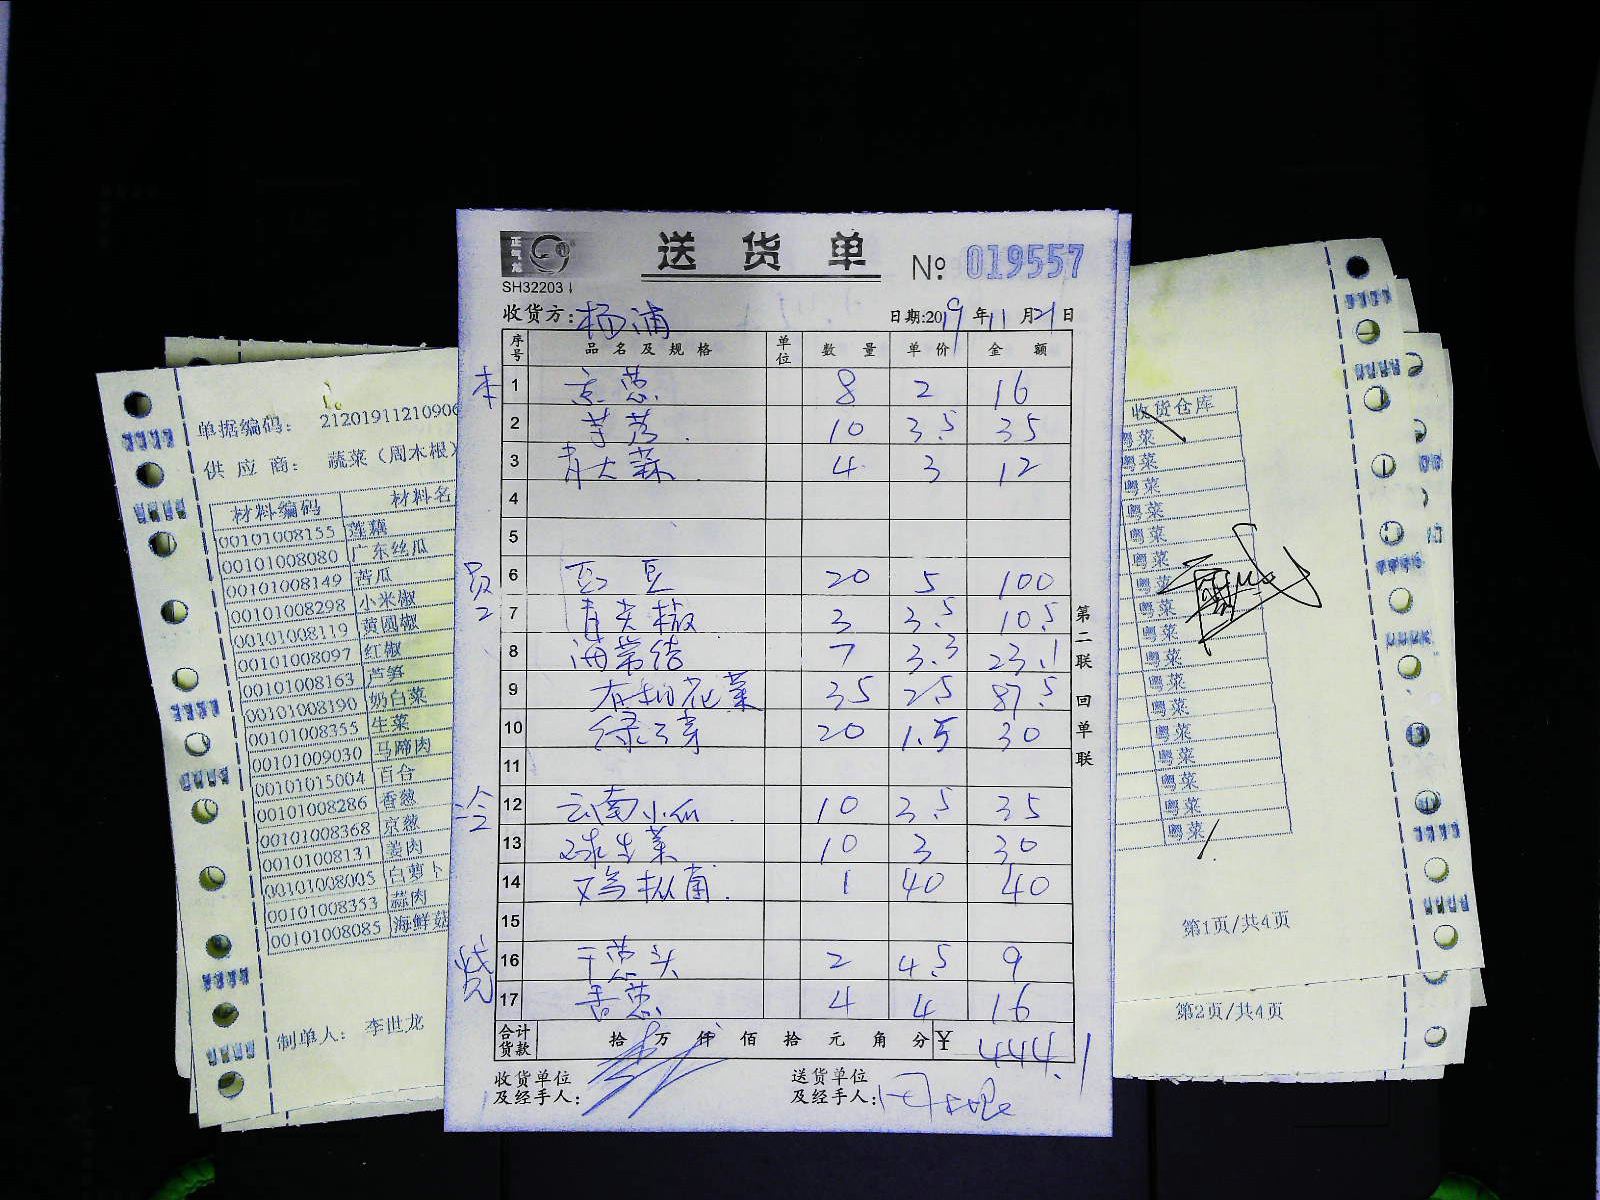 正气龙
送货单 № 019557
SH32203↓
收货方:杨浦 日期:2019年11月21日
序号 品名及规格 单位 数量 单价 金额
本 1 京葱 8 2 16
2 芋艿 10 3.5 35
3 青大蒜 4 3 12
4
5
员工 6 豆 20 5 100
7 青尖椒 3 3.5 10.5
8 海带结 7 3.3 23.1
9 有机花菜 35 2.5 87.5
10 绿豆芽 20 1.5 30
11
冷 12 云南小瓜 10 3.5 35
13 球生菜 10 3 30
14 鸡枞菌 1 40 40
15
烧 16 干葱头 2 4.5 9
17 香葱 4 4 16
合计货款 拾 万 仟 佰 拾 元 角 分 ¥ 444.1
收货单位及经手人: 送货单位及经手人:周木根
第二联 回单联
单据编码: 21201911210906
供应商: 蔬菜(周木根)
材料编码 材料名
00101008155 莲藕
00101008080 广东丝瓜
00101008149 苦瓜
00101008298 小米椒
00101008119 黄圆椒
00101008097 红椒
00101008163 芦笋
00101008190 奶白菜
00101008355 生菜
00101009030 马蹄肉
00101015004 百合
00101008286 香葱
00101008368 京葱
00101008131 姜肉
00101008005 白萝卜
00101008353 蒜肉
00101008085 海鲜菇
制单人: 李世龙
收货仓库
粤菜
粤菜
粤菜
粤菜
粤菜
粤菜
粤菜
粤菜
粤菜
粤菜
粤菜
粤菜
粤菜
粤菜
粤菜
粤菜
粤菜
第1页/共4页
第2页/共4页